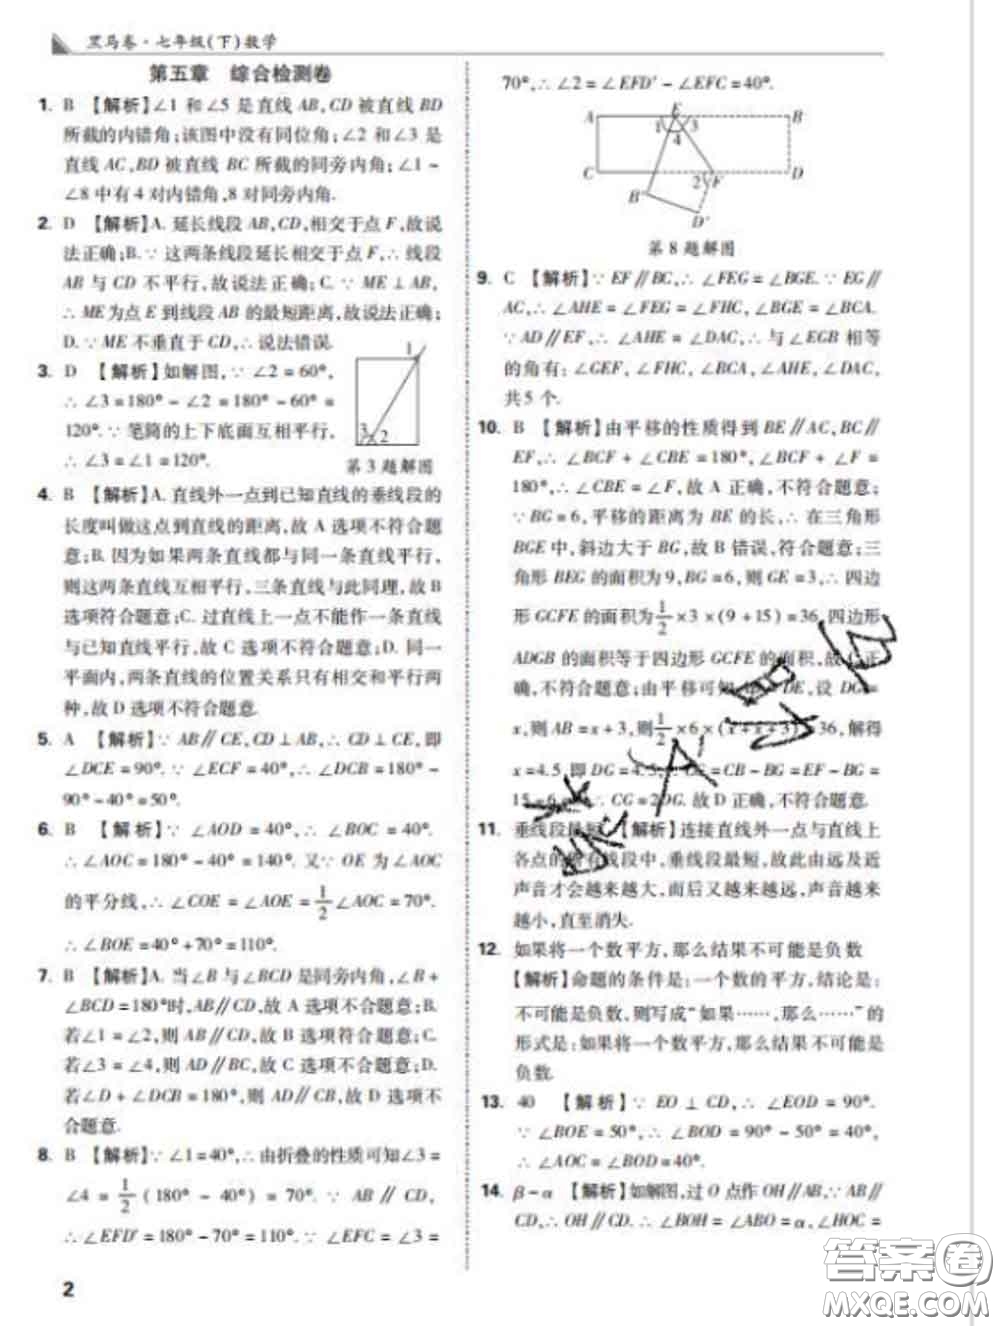 黑马卷·七年级(下)数学
第五章 综合检测卷
1. B 【解析】∠1 和 ∠5 是直线 AB,CD 被直线 BD
所截的内错角;该图中没有同位角;∠2 和 ∠3 是
直线 AC,BD 被直线 BC 所截的同旁内角;∠1~
∠8 中有 4 对内错角,8 对同旁内角.
2. D 【解析】A. 延长线段 AB,CD,相交于点 F,故说
法正确;B. ∵ 这两条线段延长相交于点 F,∴ 线段
AB 与 CD 不平行,故说法正确;C. ∵ ME ⊥ AB,
∴ ME 为点 E 到线段 AB 的最短距离,故说法正确;
D. ∵ ME 不垂直于 CD,∴ 说法错误.
3. D 【解析】如解图,∵ ∠2 = 60°,
∴ ∠3 = 180° − ∠2 = 180° − 60° =
120°. ∵ 笔筒的上下底面互相平行,
∴ ∠3 = ∠1 = 120°.
1
3
2
第 3 题解图
4. B 【解析】A. 直线外一点到已知直线的垂线段的
长度叫做这点到直线的距离,故 A 选项不符合题
意;B. 因为如果两条直线都与同一条直线平行,
则这两条直线互相平行,三条直线与此同理,故 B
选项符合题意;C. 过直线上一点不能作一条直线
与已知直线平行,故 C 选项不符合题意;D. 同一
平面内,两条直线的位置关系只有相交和平行两
种,故 D 选项不符合题意.
5. A 【解析】∵ AB∥CE,CD ⊥ AB,∴ CD ⊥ CE,即
∠DCE = 90°. ∵ ∠ECF = 40°,∴ ∠DCB = 180° −
90° − 40° = 50°.
6. B 【解析】∵ ∠AOD = 40°,∴ ∠BOC = 40°.
∴ ∠AOC = 180° − 40° = 140°. 又∵ OE 为 ∠AOC
的平分线,∴ ∠COE = ∠AOE = 1/2 ∠AOC = 70°.
∴ ∠BOE = 40° + 70° = 110°.
7. B 【解析】A. 当 ∠B 与 ∠BCD 是同旁内角,∠B +
∠BCD = 180°时,AB∥CD,故 A 选项不合题意;B.
若∠1 = ∠2,则 AB∥CD,故 B 选项符合题意;C.
若∠3 = ∠4,则 AD∥BC,故 C 选项不合题意;D.
若∠D + ∠DCB = 180°,则 AD∥CB,故 D 选项不
合题意.
8. B 【解析】∵ ∠1 = 40°,∴ 由折叠的性质可知∠3 =
∠4 = 1/2 (180° − 40°) = 70°. ∵ AB ∥ CD,
∴ ∠EFD′ = 180° − 70° = 110°. ∵ ∠EFC = ∠3 =
2
70°,∴ ∠2 = ∠EFD′ − ∠EFC = 40°.
A E B
1 3
4
C 2 F D
B′
D′
第 8 题解图
9. C 【解析】∵ EF∥BC,∴ ∠FEG = ∠BGE. ∵ EG∥
AC,∴ ∠AHE = ∠FEG = ∠FHC,∠BGE = ∠BCA.
∵ AD∥EF,∴ ∠AHE = ∠DAC,∴ 与 ∠EGB 相等
的角有: ∠GEF, ∠FHC, ∠BCA, ∠AHE, ∠DAC,
共 5 个.
10. B 【解析】由平移的性质得到 BE∥AC,BC∥
EF,∴ ∠BCF + ∠CBE = 180°,∠BCF + ∠F =
180°,∴ ∠CBE = ∠F,故 A 正确,不符合题意;
∵ BG = 6,平移的距离为 BE 的长,∴ 在三角形
BGE 中,斜边大于 BG,故 B 错误,符合题意;三
角形 BEG 的面积为 9,BG = 6,则 GE = 3,∴ 四边
形 GCFE 的面积为 1/2 × 3 × (9 + 15) = 36,四边形
ADGB 的面积等于四边形 GCFE 的面积,故 C 正
确,不符合题意;由平移可知 DE,设 DG =
x,则 AB = x + 3,则 1/2 × 6 × (x + x + 3) = 36,解得
x = 4.5,即 DG = 4.5, = CB − BG = EF − BG =
15 − 6 ∴ CG = 2DG. 故 D 正确,不符合题意.
11. 垂线段最短 【解析】连接直线外一点与直线上
各点的所有线段中,垂线段最短,故此由远及近
声音才会越来越大,而后又越来越远,声音越来
越小,直至消失.
12. 如果将一个数平方,那么结果不可能是负数
【解析】命题的条件是:一个数的平方,结论是:
不可能是负数,则写成“如果……,那么……”的
形式是:如果将一个数平方,那么结果不可能是
负数.
13. 40 【解析】∵ EO ⊥ CD,∴ ∠EOD = 90°.
∵ ∠BOE = 50°,∴ ∠BOD = 90° − 50° = 40°,
∴ ∠AOC = ∠BOD = 40°.
14. β − α 【解析】如解图,过 O 点作 OH∥AB,∵ AB∥
CD,∴ OH∥CD. ∴ ∠BOH = ∠ABO = α,∠HOC =
答案圈
MXQE.COM